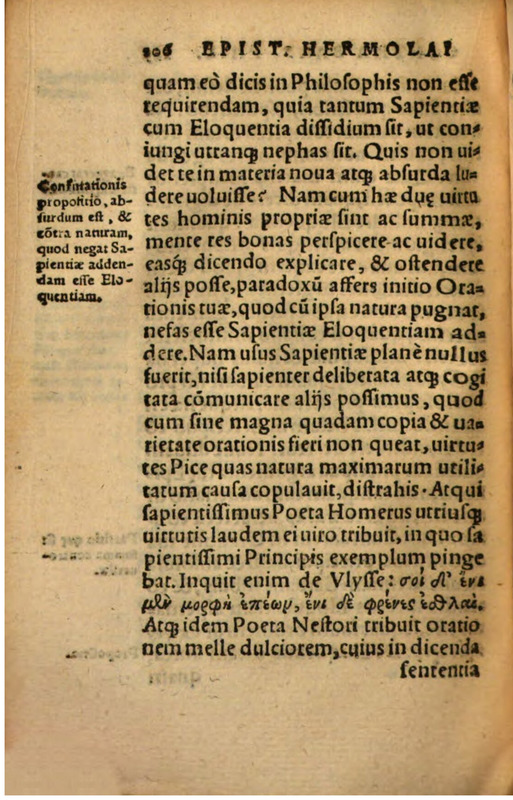 106 EPIST. HERMOLAI
quam eò dicis in Philosophis non esse
requirendam, quia tantum Sapientiæ
cum Eloquentia dissidium sit, ut con-
iungi utranq; nephas sit. Quis non ui-
det te in materia noua atq; absurda lu-
dere uoluisse? Nam cum hæ duę uirtu
tes hominis propriæ sint ac summæ,
mente res bonas perspicere ac uidere,
easq́; dicendo explicare, & ostendere
alijs posse, paradoxũ affers initio Ora-
tionis tuæ, quod cũ ipsa natura pugnat,
nefas esse Sapientiæ Eloquentiam ad-
dere. Nam usus Sapientiæ planè nullus
fuerit, nisi sapienter deliberata atq; cogi
tata cõmunicare alijs possimus, quod
cum sine magna quadam copia & ua-
rietate orationis fieri non queat, uirtu-
tes Pice quas natura maximarum utili-
tatum causa copulauit, distrahis. Atqui
sapientissimus Poeta Homerus utriusq;
uirtutis laudem ei uiro tribuit, in quo sa
pientissimi Principis exemplum pinge
bat. Inquit enim de Vlysse: σοὶ δ' ἔνι
μὲν μορφὴ ἐπέων, ἔνι δὲ φρένες ἐσθλαί.
Atq; idem Poeta Nestori tribuit oratio
nem melle dulciorem, cuius in dicenda
sententia
Confutationis
propositio, ab-
surdum est, &
cõtra naturam,
quod negat Sa-
pientiæ adden-
dam esse Elo-
quentiam.